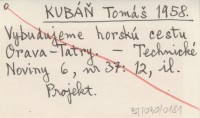 KUBÁŇ Tomáš 1958.
Vybudujeme horskú cestu
Orava-Tatry. - Technické
Noviny 6, nr 37: 12, il.
Projekt.